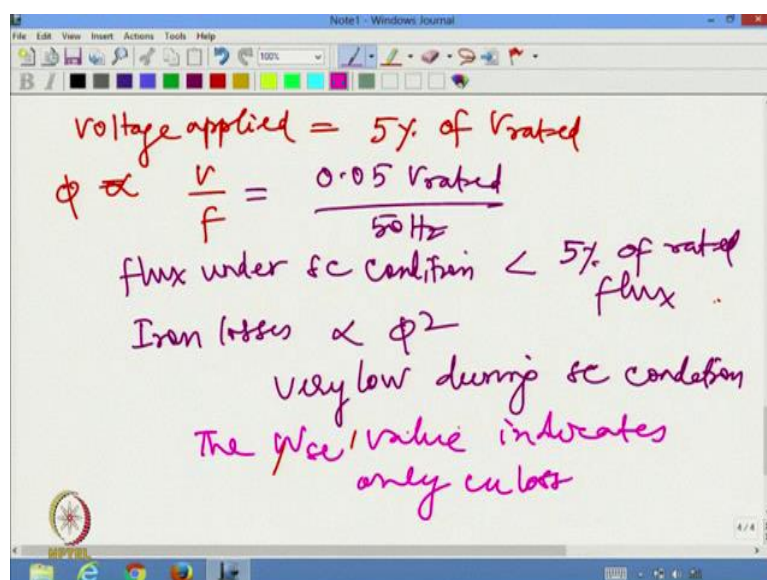 Note1 - Windows Journal
File Edit View Insert Actions Tools Help
100%
B I
voltage applied = 5% of Vrated
φ ∝ V/f = 0.05 Vrated / 50 Hz
flux under sc condition < 5% of rated flux
Iron losses ∝ φ²
very low during sc condition
The Wsc value indicates
only cu loss
4/4
NPTEL